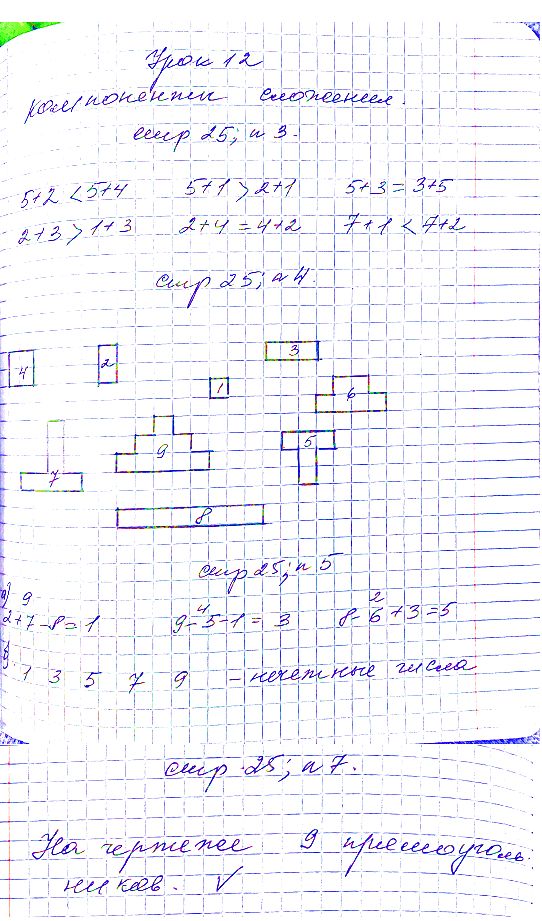 Урок 12
компоненты сложения.
стр 25; п 3.
5+2 < 5+4 5+1 > 2+1 5+3 = 3+5
2+3 > 1+3 2+4 = 4+2 7+1 < 7+2
стр 25; п 4.
4 2 1 3
6
7 9 5
8
стр 25; п 5
а) 9 4 2
2+7-8=1 9-5-1=3 8-6+3=5
б)
1 3 5 7 9 - нечетные числа
стр 25; п 7.
На чертеже 9 прямоуголь
ников. √